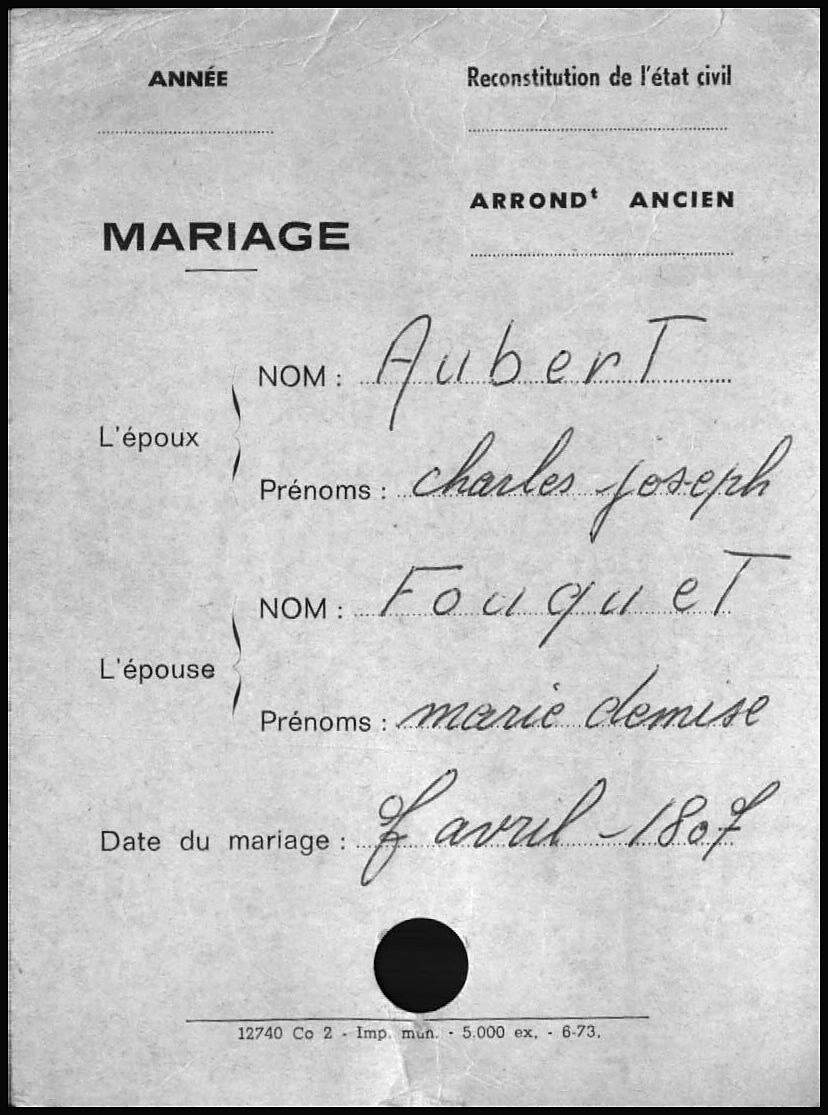 ANNÉE
Reconstitution de l'état civil
ARRONDt ANCIEN
MARIAGE
L'époux
NOM : AuberT
Prénoms : charles joseph
L'épouse
NOM : FouqueT
Prénoms : marie demise
Date du mariage : 7 avril - 1807
12740 Co 2 - Imp. mun. - 5.000 ex. - 6-73.